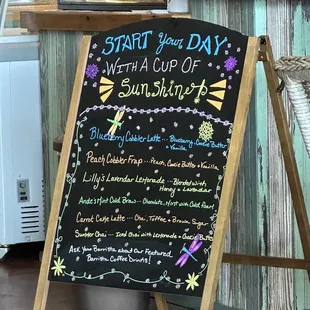 START your DAY
WITH A CUP OF
Sunshine!
Blueberry Cobbler Latte ... Blueberry, Cookie Butter
+ Vanilla
Peach Cobbler Frap ... Peach, Cookie Butter + Vanilla
Lilly's Lavender Lemonade ... Blended with
Honey + Lavender
Andes Mint Cold Brew ... Chocolate, Mint with Cold Foam
Carrot Cake Latte ... Chai, Toffee + Brown Sugar
Sunster Chai ... Iced Chai with Lemonade + Cookie Butter
Ask Your Barista about Our Featured
Barista Coffee Drinks!